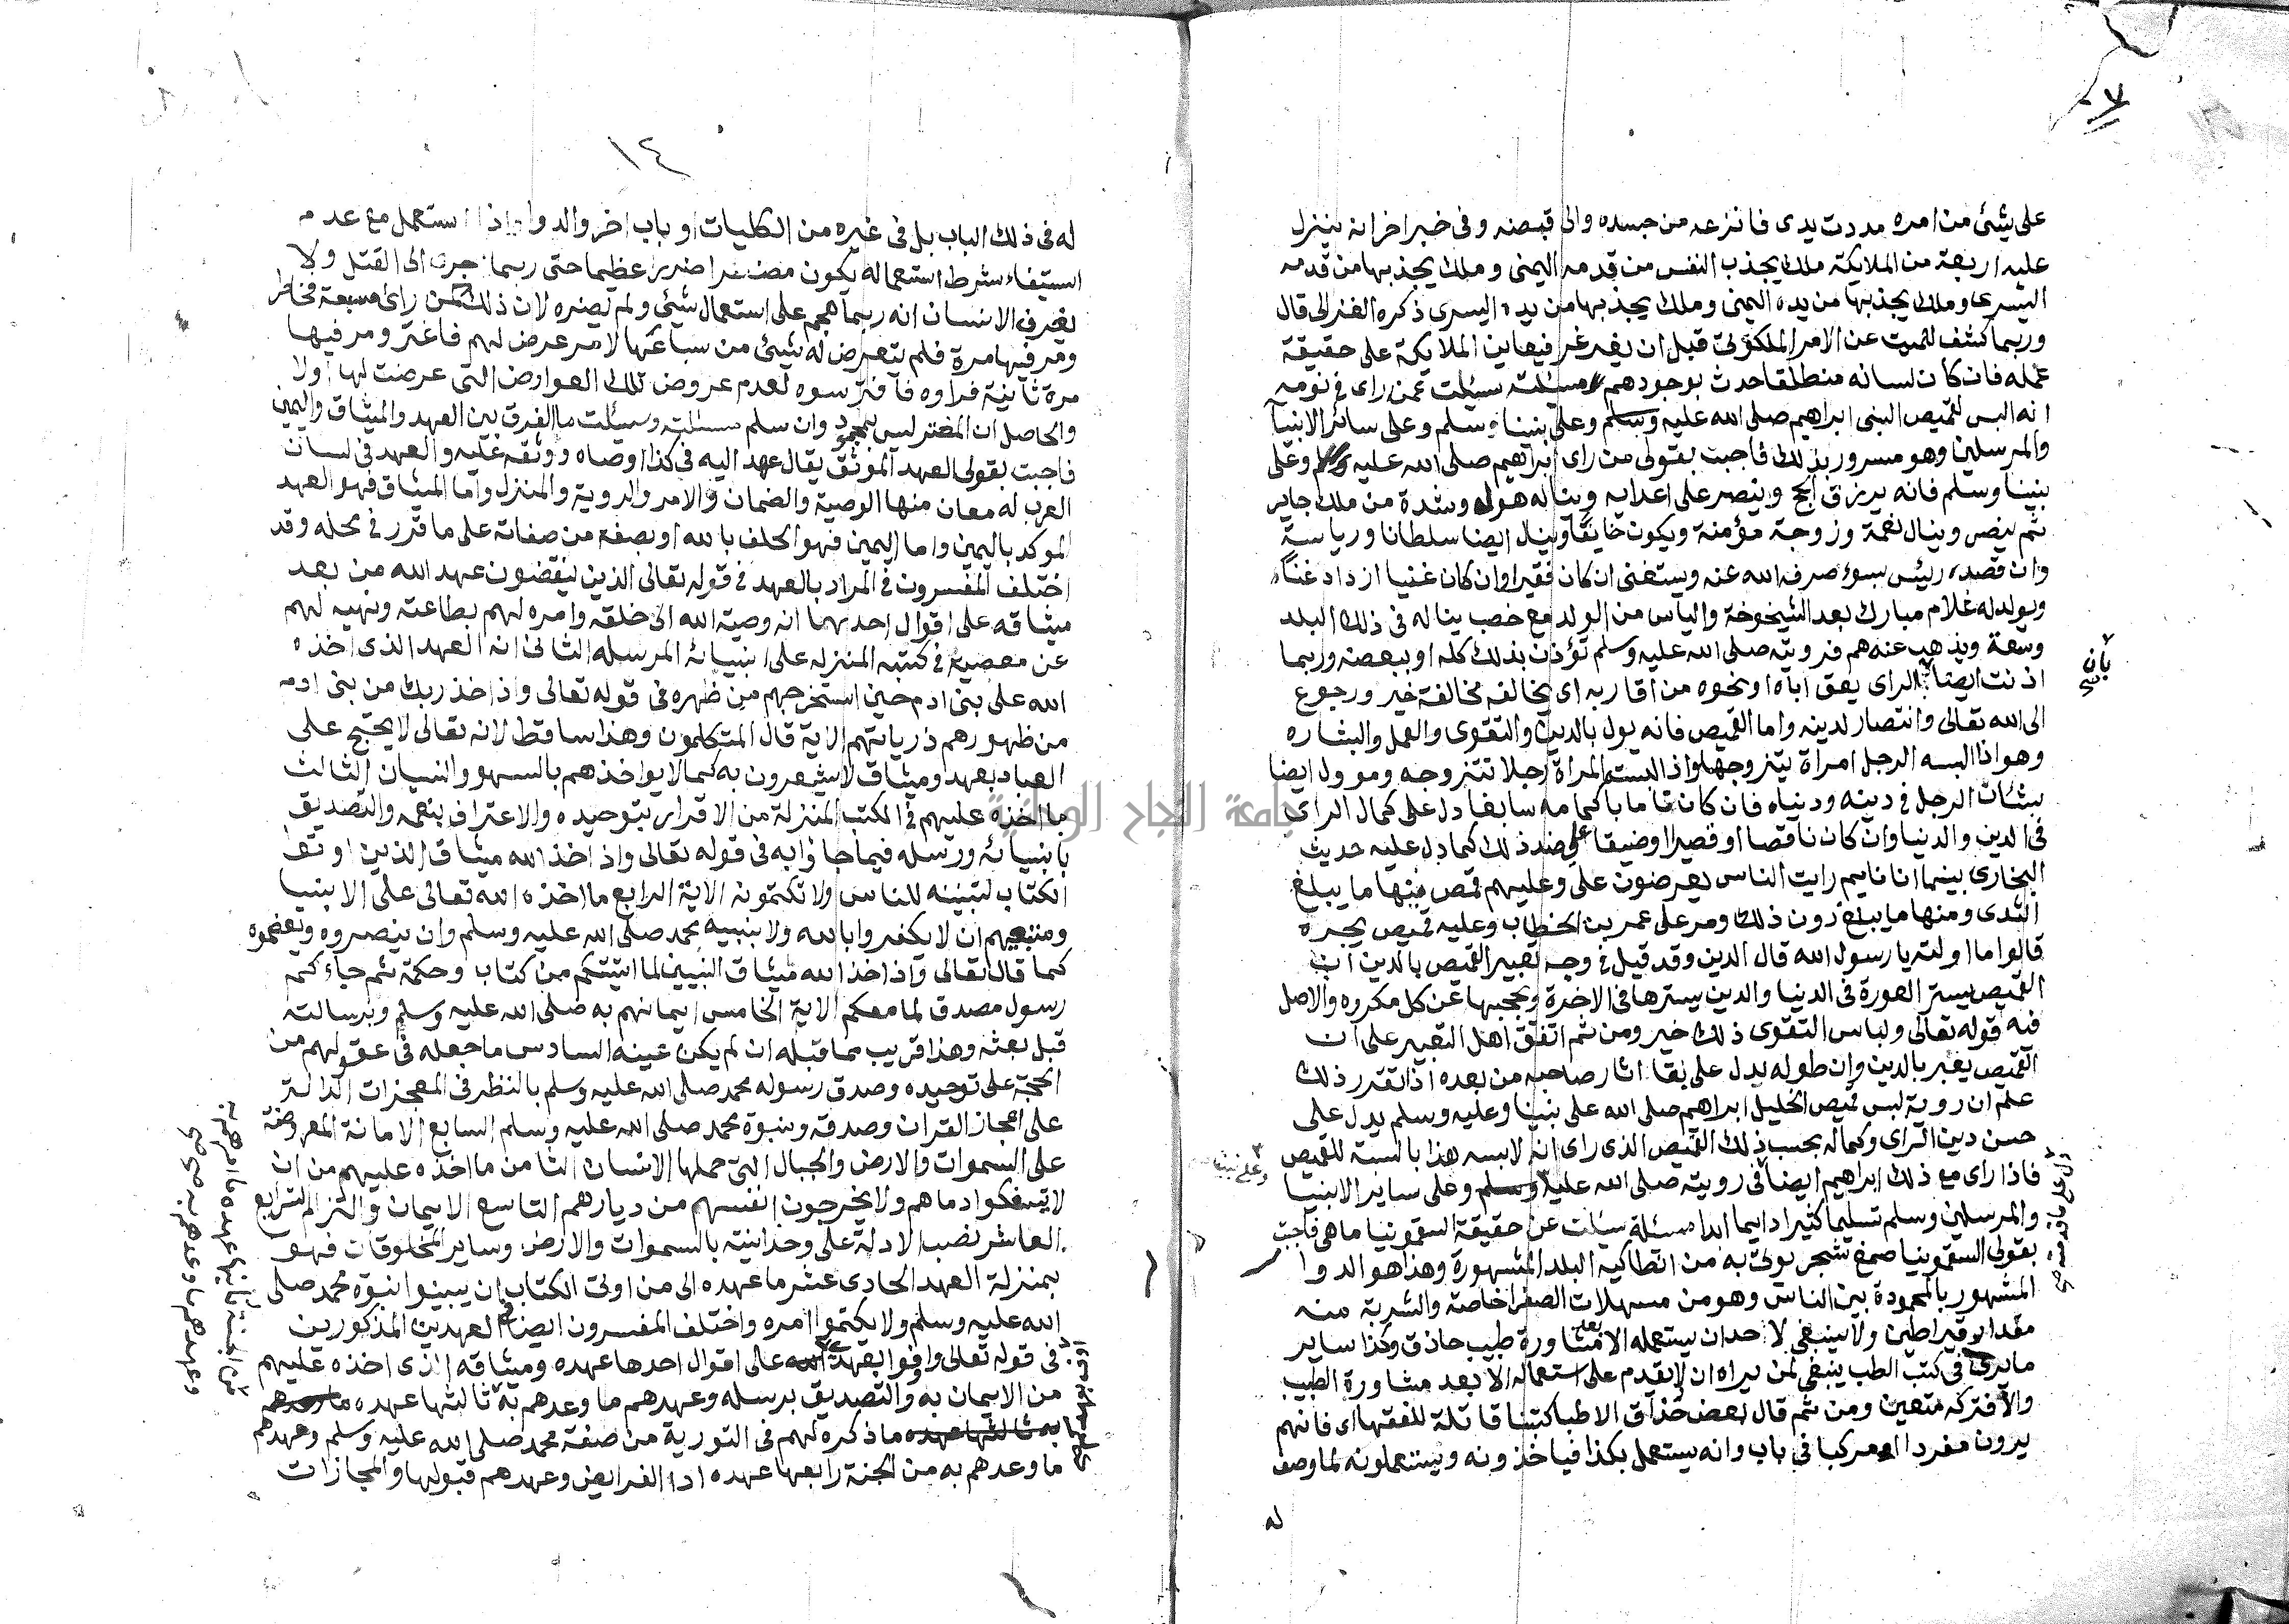 على شيئ من امره مددت يدى فانزعه من جسده والى قبضه وفى خبر اخر انه ينزل
عليه اربعة من الملايكة ملك يجذب النفس من قدمه اليمنى وملك يجذبها من قدمه
اليسرى وملك يجذبها من يده اليمنى وملك يجذبها من يده اليسرى ذكره الغزلى قال
وربما كشف للميت عن الامر الملكوتى قبل ان يغرغر فيعاين الملايكة على حقيقة
عمله فان كان لسانه منطلقا حدث بوجودهم مسئلة سئلت عمن راى فى نومه
انه البس قميص النبى ابراهيم صلى الله عليه وسلم وعلى نبينا وسلم وعلى سائر الانبيا
والمرسلين وهو مسرور بذلك فاجبت بقولى من راى ابراهيم صلى الله عليه وعلى
نبينا وسلم فانه يرزق الحج وينصر على اعدايه ويناله هول وشدة من ملك جاير
ثم ينصر وينال نعمة وزوجة مؤمنة ويكون خايفا وينال ايضا سلطانا ورياسة
وان قصده رئيس بسوء صرفه الله عنه ويستغنى ان كان فقيرا وان كان غنيا ازداد غناً
ويولد له غلام مبارك بعد الشيخوخة والياس من الولد مع خصب يناله فى ذلك البلد
وسعة ويذهب عنه هم فرويته صلى الله عليه وسلم تؤذن بذلك كله او ببعضه وربما
اذنت ايضا الراى يعق اباه او نحوه من اقاربه اى يخالفه مخالفة خير ورجوع
بان
الى الله تعالى وانتصار لدينه واما القميص فانه يول بالدين والتقوى والعمل والبشاره
وهو اذا البسه الرجل امراة يتزوجها واذا البسته المراة رجلا تتزوجه ومو ول ايضا
بشان الرجل فى دينه ودنياه فان كان تاما باكمامه سابغا دل على كمال الراى
فى الدين والدنيا وان كان ناقصا او قصيرا او ضيقا على ضد ذلك كما دل عليه حديث
البخارى بينما انا نايم رايت الناس يعرضون على وعليهم قمص منها ما يبلغ
الثدى ومنها ما يبلغ دون ذلك ومر على عمر بن الخطاب وعليه قميص يجره
قالوا ما اولته يا رسول الله قال الدين وقد قيل فى وجه تعبير القميص بالدين ان
القميص يستر العورة فى الدنيا والدين يسترها فى الاخرة ويحجبها عن كل مكروه والاصل
فيه قوله تعالى ولباس التقوى ذلك خير ومن ثم اتفق اهل التعبير على ان
القميص يعبر بالدين وان طوله يدل على بقا اثار صاحبه من بعده اذا تقرر ذلك
علم ان روية لبس قميص الخليل ابراهيم صلى الله على نبينا وعليه وسلم يدل على
حسن دين الراى وكماله بحسب ذلك القميص الذى راى انه لابسه هذا بالنسبة للقميص
فاذا راى مع ذلك ابراهيم ايضا فى رويته صلى الله عليه وسلم وعلى ساير الانبيا
وعلى نبينا
والمرسلين وسلم تسليما كثيرا دايما ابدا مسئلة سئلت عن حقيقة السقمونيا ما هى فاجبت
بقولى السقمونيا صمغ شجر يوتى به من انطاكية البلد المشهورة وهذا هو الدوا
المشهور بالمحمودة بين الناس وهو من مسهلات الصفرا خاصة والشربة منه
مقدار قيراطين ولا ينبغى لاحد ان يستعمله الا بعد مشاورة طبيب حاذق وكذا ساير
ما يرى فى كتب الطب ينبغى لمن يراه ان لا يقدم على استعماله الا بعد مشاورة الطبيب
والا فتركه متعين ومن ثم قال بعض حذاق الاطبا كتبنا قاتلة للفقها اى فانهم
يرون مفردا او مركبا فى باب وانه يستعمل بكذا فياخذونه ويستعملونه لما وصف
له
١٤
له فى ذلك الباب بل فى غيره من الكليات او باب اخر والدوا اذا استعمل مع عدم
استيفاء شرط استعماله يكون مضرا ضررا عظيما حتى ربما جرى الى القتل ولا
يغرق الانسان انه ربما هجم على استعمال شيئ ولم يضره لان ذلك كمن راى مسبعة فخاطر
ومر فيها مرة فلم يتعرض له شيئ من سباعها لامر عرض لهم فاغتر ومر فيها
مرة ثانية فراوه فافترسوه لعدم عروض تلك العوارض التى عرضت لها اولا
والحاصل ان المغتر ليس بمحمود وان سلم مسئلة وسئلت ما الفرق بين العهد والميثاق واليمين
فاجبت بقولى العهد الموثق يقال عهد اليه فى كذا اوصاه ووثقه عليه والعهد فى لسان
العرب له معان منها الوصية والضمان والامر والروية والمنزل واما الميثاق فهو العهد
الموكد باليمين واما اليمين فهو الحلف بالله او بصفة من صفاته على ما قرر فى محله وقد
اختلف المفسرون فى المراد بالعهد فى قوله تعالى الذين ينقضون عهد الله من بعد
ميثاقه على اقوال احدها انه وصية الله الى خلقه وامره لهم بطاعته ونهيه لهم
عن معصيته فى كتبه المنزله على انبيائه المرسله الثانى انه العهد الذى اخذه
الله على بنى ادم حين استخرجهم من ظهره فى قوله تعالى واذ اخذ ربك من بنى ادم
من ظهورهم ذرياتهم الاية قال المتكلمون وهذا ساقط لانه تعالى لا يحتج على
العباد بعهد وميثاق لا يشعرون به كما لا يواخذهم بالسهو والنسيان الثالث
ما اخذه عليهم فى الكتب المنزلة من الاقرار بتوحيده والاعتراف بنعمه والتصديق
بانبيائه ورسله فيما جاؤا به فى قوله تعالى واذ اخذ الله ميثاق الذين اوتوا
الكتاب لتبيننه للناس ولا تكتمونه الاية الرابع ما اخذه الله تعالى على الانبيا
ومتبعيهم ان لا يكفروا بالله ولا بنبيه محمد صلى الله عليه وسلم وان ينصروه ويعظموه
كما قال تعالى واذ اخذ الله ميثاق النبيين لما اتيتكم من كتاب وحكمة ثم جاءكم
رسول مصدق لما معكم الاية الخامس ايمانهم به صلى الله عليه وسلم وبرسالته
قبل بعثه وهذا قريب مما قبله ان لم يكن عينه السادس ما جعله فى عقولهم من
الحجة على توحيده وصدق رسوله محمد صلى الله عليه وسلم بالنظر فى المعجزات الدالة
على اعجاز القران وصدقه ونبوة محمد صلى الله عليه وسلم السابع الامانة المعروضة
على السموات والارض والجبال التى حملها الانسان الثامن ما اخذه عليهم من ان
لا يسفكوا دماهم ولا يخرجون انفسهم من ديارهم التاسع الايمان والتزام الشرايع
العاشر نصب الادلة على وحدانيته بالسموات والارض وساير المخلوقات فهو
بمنزلة العهد الحادى عشر ما عهده الى من اوتى الكتاب ان يبينوا نبوة محمد صلى
الله عليه وسلم ولا يكتموا امره واختلف المفسرون ايضا فى العهدين المذكورين
فى قوله تعالى واوفوا بعهدى على اقوال احدها عهده وميثاقه الذى اخذه عليهم
من الايمان به والتصديق برسله وعهدهم ما وعدهم به ثالثها عهده ما وعدهم
به ثالثها عهده ما ذكره لهم فى التورية من صفة محمد صلى الله عليه وسلم وعهدهم
ما وعدهم به من الجنة رابعها عهده اداء الفرايض وعهدهم قبولها والمجازات
من الجنة ثانيها عهده ما امرهم به
وعهدهم ما وعدهم به صح صح
جامعة النجاح الوطنية